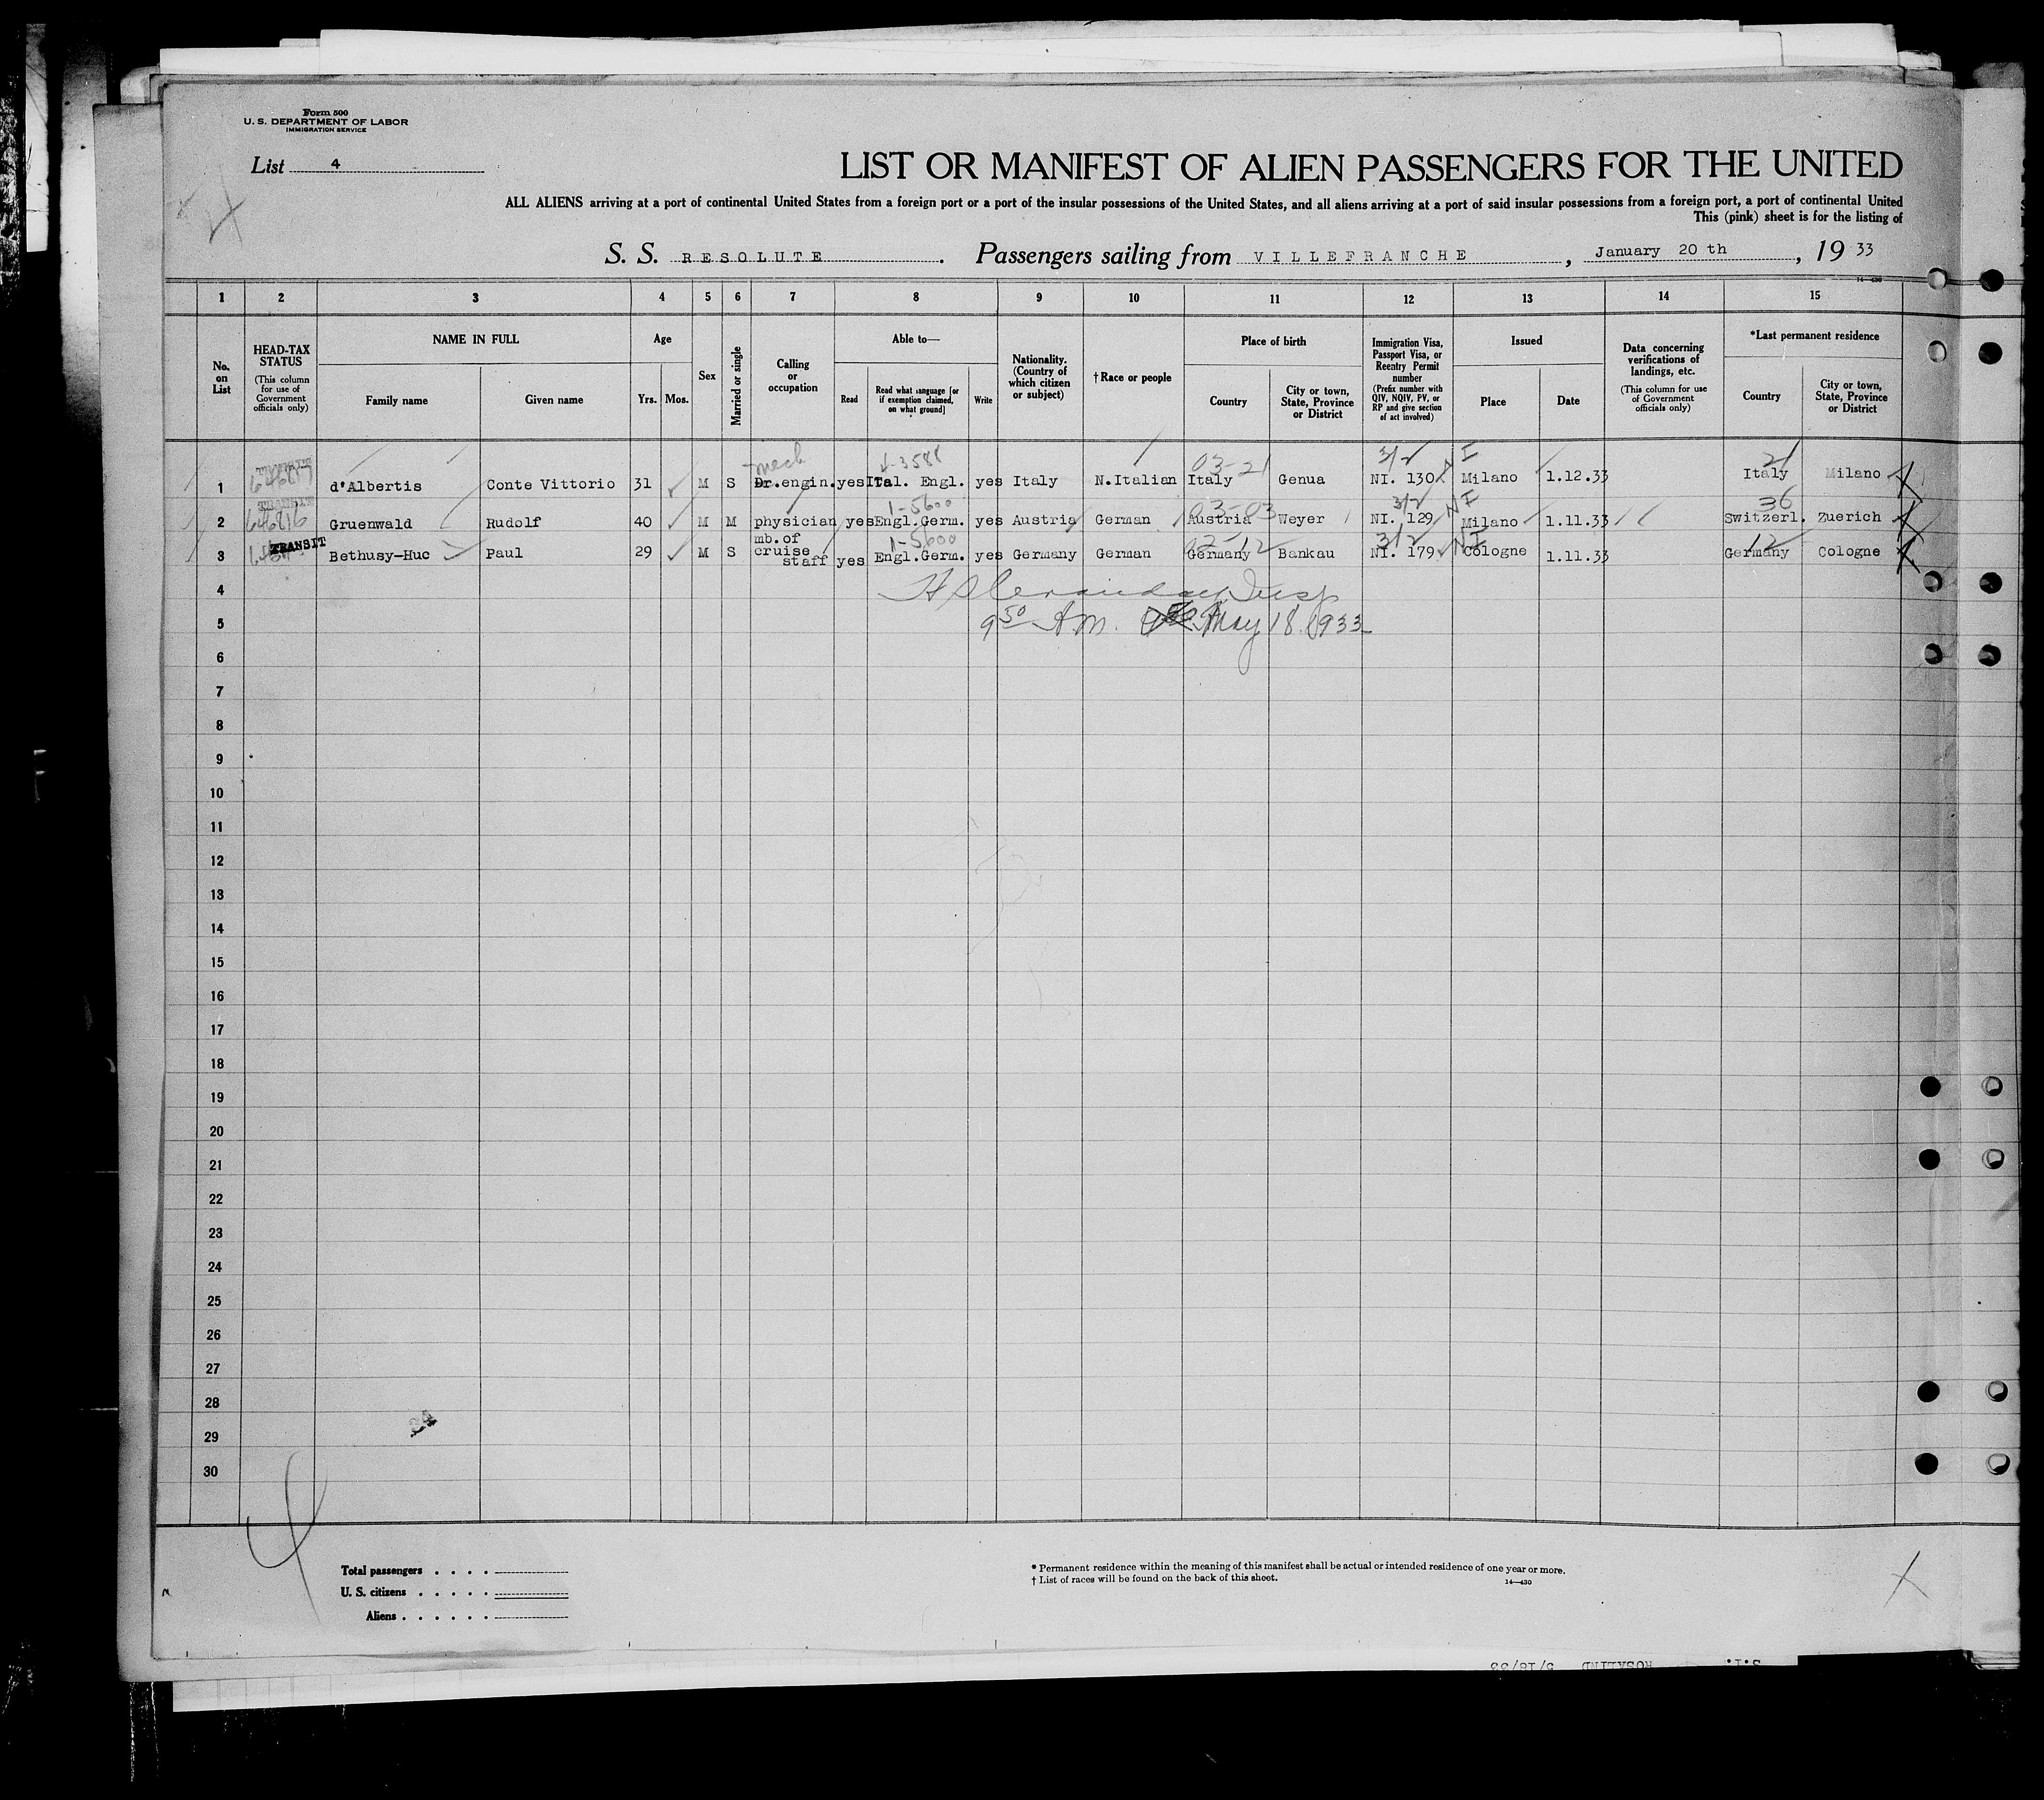 Form 500
U. S. DEPARTMENT OF LABOR
IMMIGRATION SERVICE
List 4
LIST OR MANIFEST OF ALIEN PASSENGERS FOR THE UNITED
ALL ALIENS arriving at a port of continental United States from a foreign port or a port of the insular possessions of the United States, and all aliens arriving at a port of said insular possessions from a foreign port, a port of continental United
This (pink) sheet is for the listing of
S. S. RESOLUTE . Passengers sailing from VILLEFRANCHE , January 20 th , 19 33
14—430
1 2 3 4 5 6 7 8 9 10 11 12 13 14 15
No. on List
HEAD-TAX STATUS (This column for use of Government officials only)
NAME IN FULL
Family name Given name
Age
Yrs. Mos.
Sex
Married or single
Calling or occupation
Able to—
Read Read what language [or if exemption claimed, on what ground] Write
Nationality. (Country of which citizen or subject)
† Race or people
Place of birth
Country City or town, State, Province or District
Immigration Visa, Passport Visa, or Reentry Permit number (Prefix number with QIV, NQIV, PV, or RP and give section of act involved)
Issued
Place Date
Data concerning verifications of landings, etc. (This column for use of Government officials only)
*Last permanent residence
Country City or town, State, Province or District
mech 4-3588 03-21 3/2 NI 21
1 646817 d'Albertis Conte Vittorio 31 M S Dr.engin. yes Ital. Engl. yes Italy N.Italian Italy Genua NI. 130 Milano 1.12.33 Italy Milano
TRANSIT 1-5600 03-03 3/2 NI 36
2 646816 Gruenwald Rudolf 40 M M physician yes Engl.Germ. yes Austria German Austria Weyer NI. 129 Milano 1.11.33 Switzerl. Zuerich
TRANSIT 1-5600 02-12 3/2 NI 12
3 Bethusy-Huc Paul 29 M S mb.of cruise staff yes Engl.Germ. yes Germany German Germany Bankau NI. 179 Cologne 1.11.33 Germany Cologne
4 Insp
5 9 50 AM. May 18. 1933
6
7
8
9
10
11
12
13
14
15
16
17
18
19
20
21
22
23
24
25
26
27
28
29
30
Total passengers
U. S. citizens
Aliens
* Permanent residence within the meaning of this manifest shall be actual or intended residence of one year or more.
† List of races will be found on the back of this sheet.
14—430
S.I. ROSALIND 5/18/33